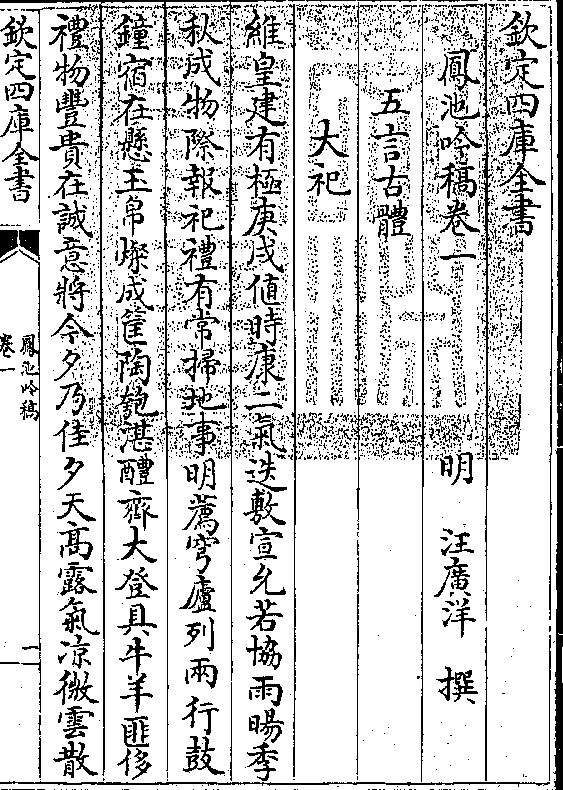 欽定四庫全書
鳳池吟稿卷一
明 汪廣洋 撰
五言古體
大祀
維皇建有極庚戌值時康二氣迭敷宣允若協雨暘季
秋成物際報祀禮有常掃地事明薦穹廬列兩行鼓
鐘宿在懸玉帛燦成筐陶匏湛醴齊大登具牛羊匪侈
禮物豐貴在誠意將今夕乃佳夕天高露氣凉微雲散
欽定四庫全書
鳳池吟稿
卷一
一